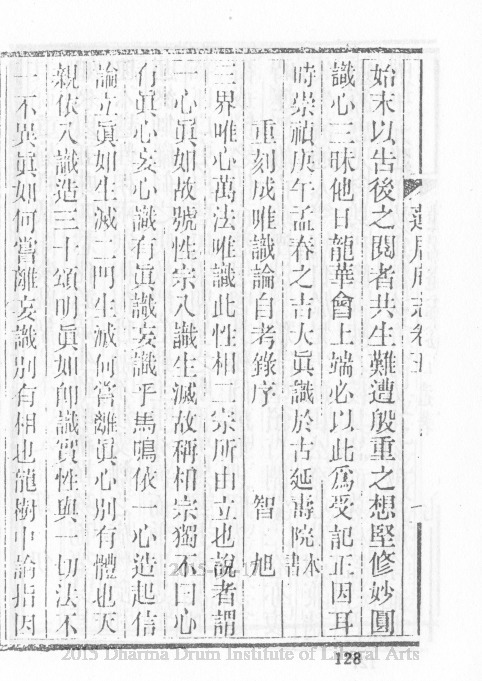 蓮居庵志卷五
始末以告後之閱者共生難遭殷重之想堅修妙圓
識心三昧他日龍華會上端必以此為受記正因耳
時崇禎庚午孟春之吉大眞識於古延壽院本書
重刻成唯識論自考錄序 智旭
三界唯心萬法唯識此性相二宗所由立也說者謂
一心眞如故號性宗八識生滅故稱相宗獨不曰心
有眞心妄心識有眞識妄識乎馬鳴依一心造起信
論立眞如生滅二門生滅何嘗離眞心別有體也天
親依八識造三十頌明眞如卽識實性與一切法不
一不異眞如何嘗離妄識別有相也龍樹中論指因
128
2015 Dharma Drum Institute of Liberal Arts